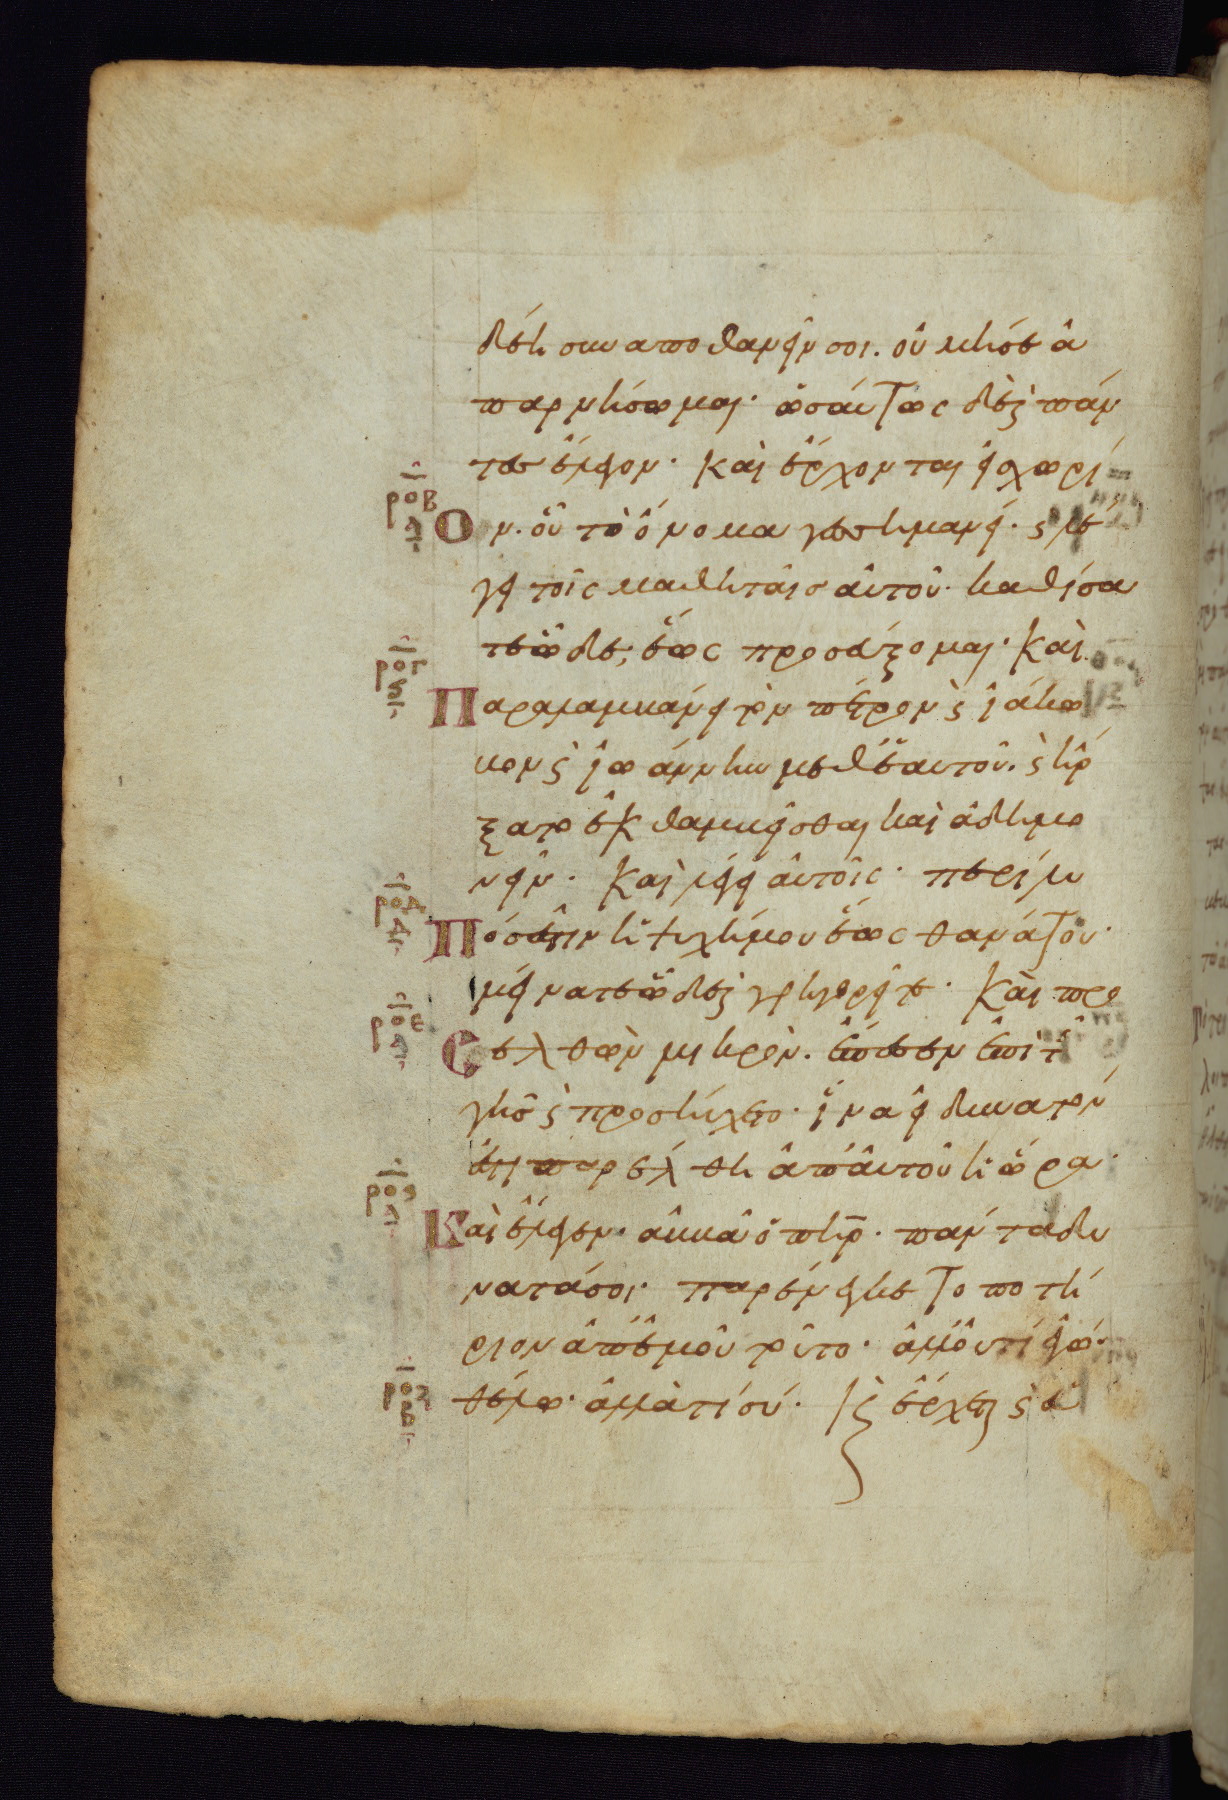 δέη συναποθανεῖν σοι. οὐ μή σε ἀ
παρνήσωμαι· ὡσαύτως δὲ ϗ πάν
τες ἔλεγον· καὶ ἔρχονται εἰς χωρί
ροβ
Ον. οὗ τὸ ὄνομα γεσσημανεῖ· ϗ λέ
γει τοῖς μαθηταῖς αὐτοῦ· καθίσα
τε ὧδε; ἕως προσεύξομαι· Καὶ
ρογ
Παραλαμβάνει τὸν πέτρον ϗ ἰάκω
βον ϗ ἰωάννην μεθ' ἑαυτοῦ. ϗ ἤρ
ξατο ἐκθαμβεῖσθαι καὶ ἀδημο
νεῖν· Καὶ λέγει αὐτοῖς· περίλυ
ροδ
δ
Πός ἐστιν ἡ ψυχή μου ἕως θανάτου·
μείνατε ὧδε ϗ γρηγορεῖτε· Καὶ προ
ροε
α
Ελθὼν μικρὸν. ἔπεσεν ἐπὶ τ
γῆς ϗ προσηύχετο· ἵνα εἰ δυνατόν
ἐστι παρέλθη ἀπ' αὐτοῦ ἡ ὥρα·
ρος
α
Καὶ ἔλεγεν· ἀββᾶ ὁ πηρ· πάντα δυ
νατά σοι· παρένεγκε το ποτή
ριον ἀπ' ἐμοῦ τοῦτο· ἀλλ' οὐ τί ἐγώ·
ροζ
β
θέλω· ἀλλὰ τί σύ· Κϗ ἔρχεται ϗ εὑ